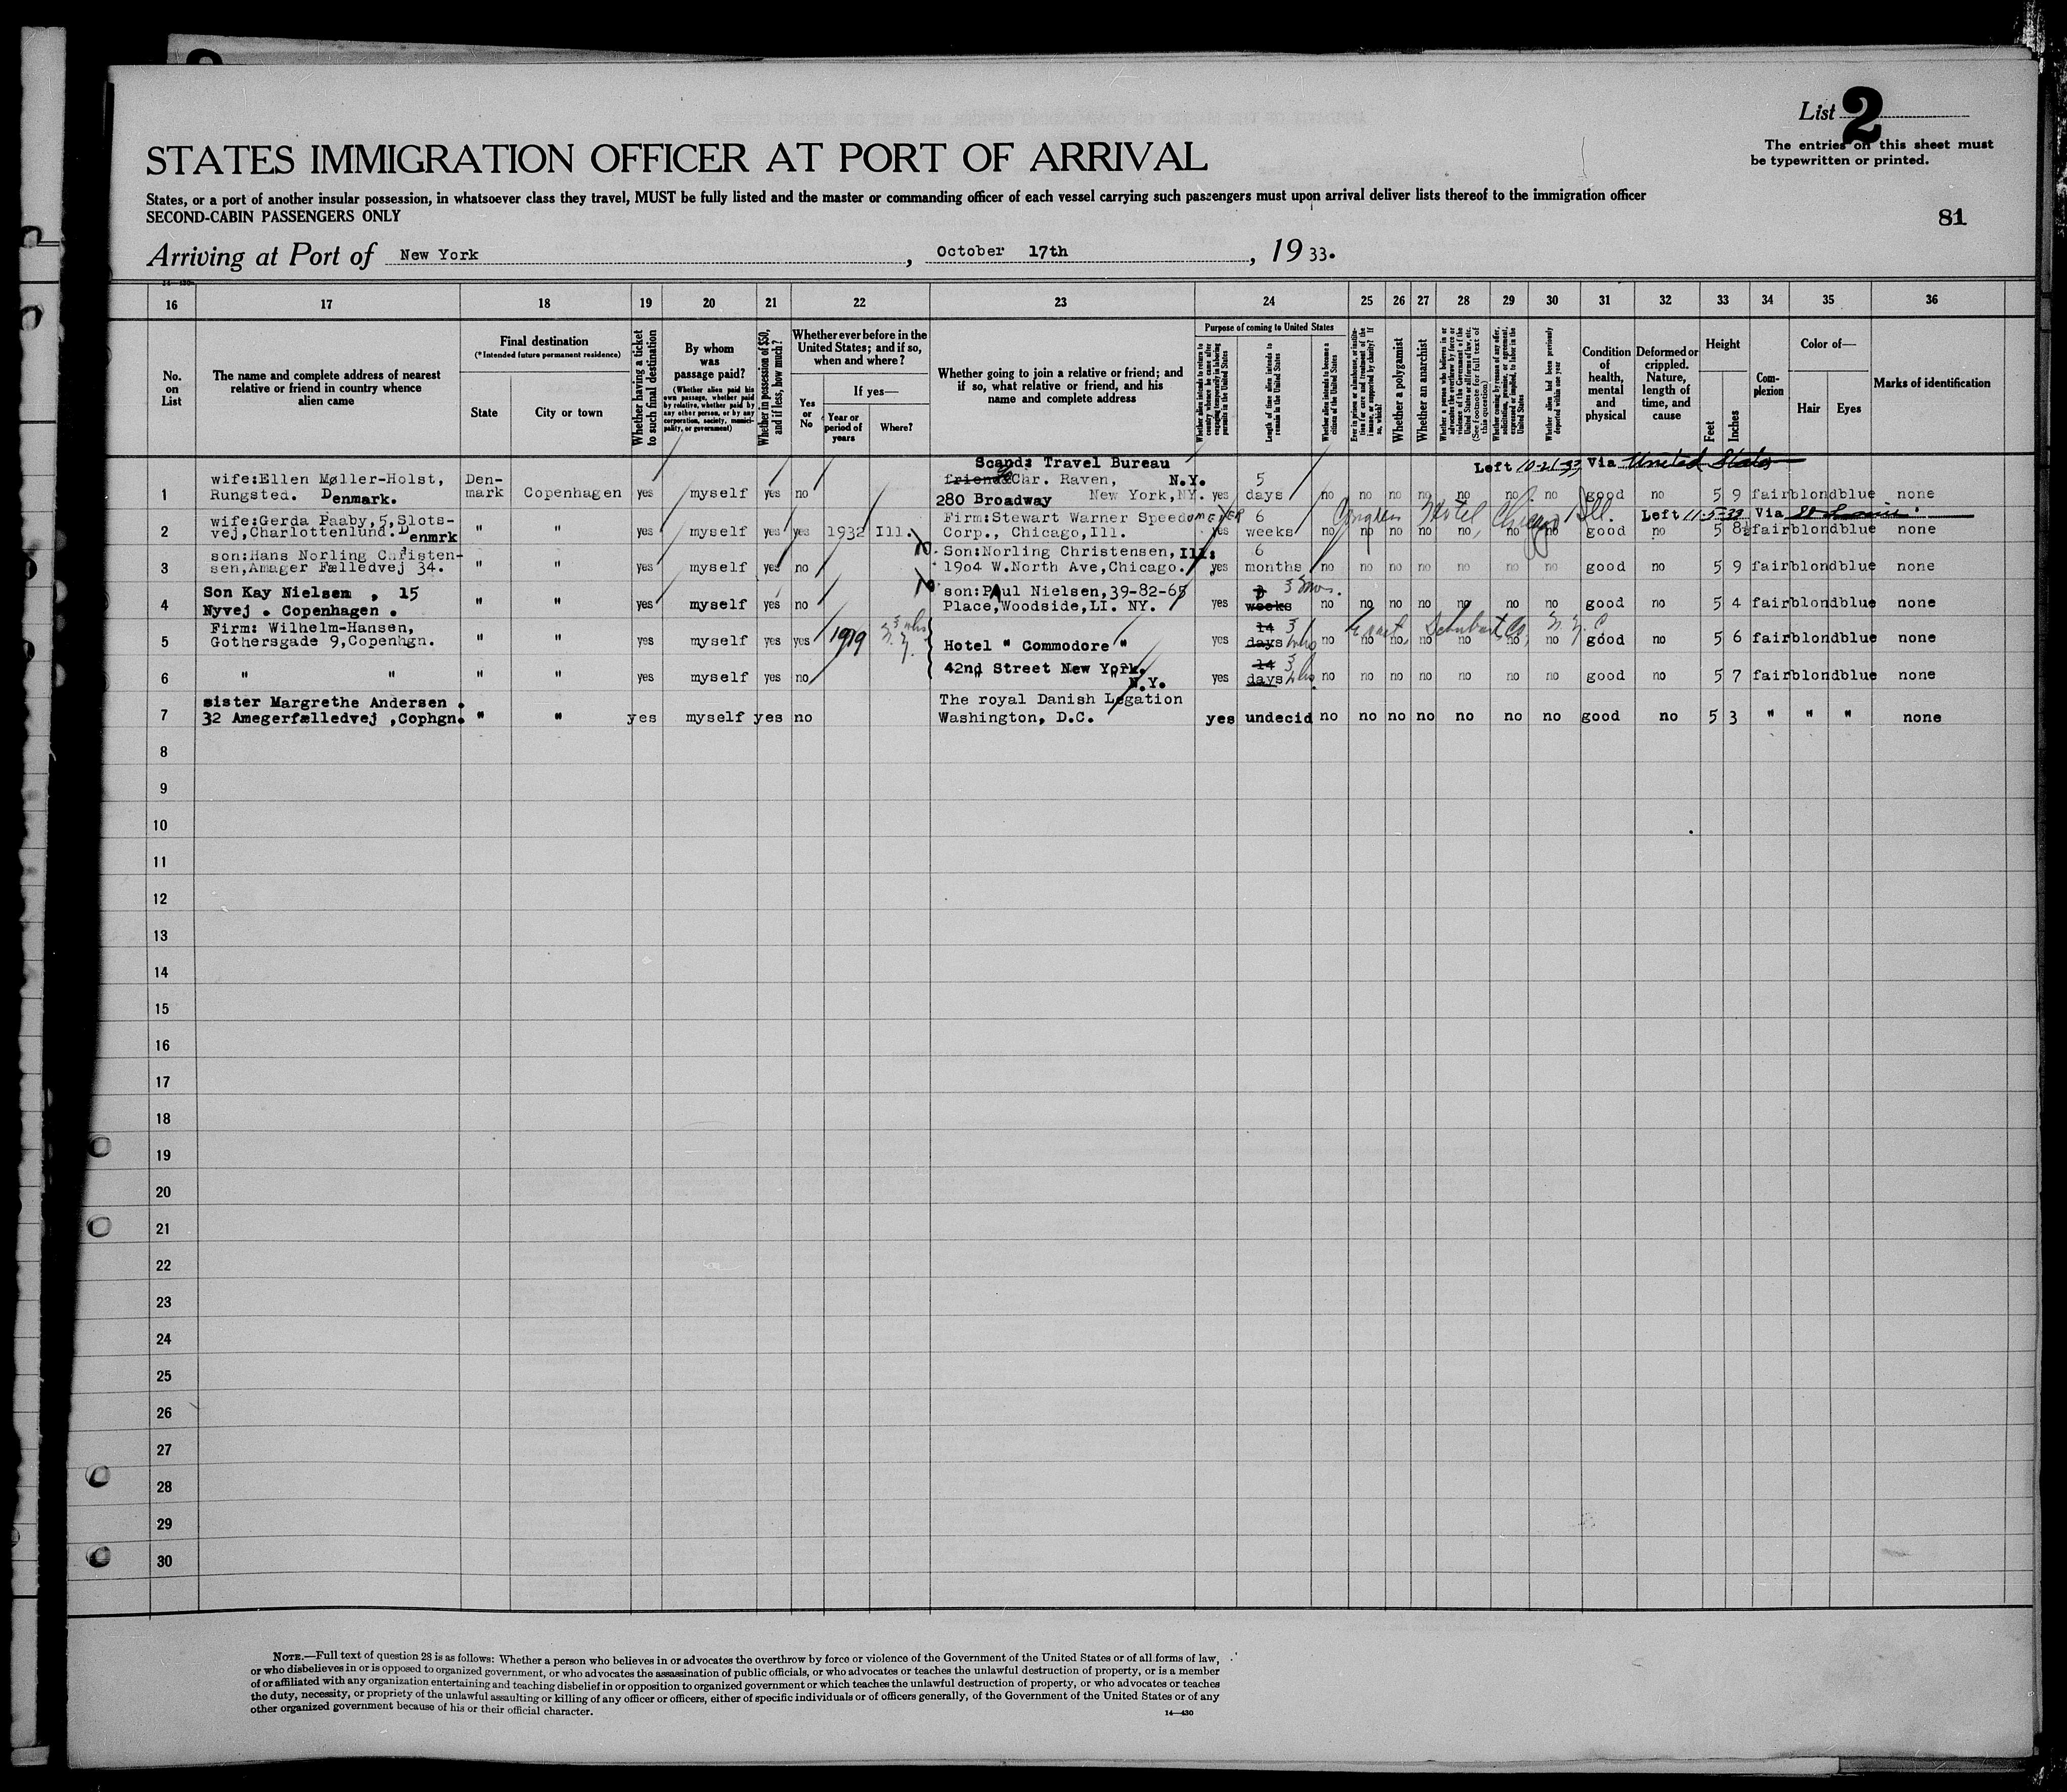 List 2
The entries on this sheet must
be typewritten or printed.
STATES IMMIGRATION OFFICER AT PORT OF ARRIVAL
States, or a port of another insular possession, in whatsoever class they travel, MUST be fully listed and the master or commanding officer of each vessel carrying such passengers must upon arrival deliver lists thereof to the immigration officer
SECOND-CABIN PASSENGERS ONLY
81
Arriving at Port of New York , October 17th , 19 33.
14—430
16 17 18 19 20 21 22 23 24 25 26 27 28 29 30 31 32 33 34 35 36
No.
on
List
The name and complete address of nearest
relative or friend in country whence
alien came
Final destination
(*Intended future permanent residence)
State
City or town
Whether having a ticket
to such final destination
By whom
was
passage paid?
(Whether alien paid his
own passage, whether paid
by relative, whether paid by
any other person, or by any
corporation, society, munici-
pality, or government)
Whether in possession of $50,
and if less, how much?
Whether ever before in the
United States; and if so,
when and where?
Yes
or
No
If yes—
Year or
period of
years
Where?
Whether going to join a relative or friend; and
if so, what relative or friend, and his
name and complete address
Purpose of coming to United States
Whether alien intends to return to
country whence he came after
engaging temporarily in laboring
pursuits in the United States
Length of time alien intends to
remain in the United States
Whether alien intends to become a
citizen of the United States
Ever in prison or almshouse, or institu-
tion for care and treatment of the
insane, or supported by charity? If
so, which?
Whether a polygamist
Whether an anarchist
Whether a person who believes in or
advocates the overthrow by force or
violence of the Government of the
United States or all forms of law, etc.
(See footnote for full text of
this question)
Whether coming by reason of any offer,
solicitation, promise, or agreement,
expressed or implied, to labor in the
United States
Whether alien had been previously
deported within one year
Condition
of
health,
mental
and
physical
Deformed or
crippled.
Nature,
length of
time, and
cause
Height
Feet
Inches
Com-
plexion
Color of—
Hair
Eyes
Marks of identification
Scand: Travel Bureau
Left 10-21-33 Via United States
wife:Ellen Møller-Holst, Den- friend: Chr. Raven, N.Y. 5
1 Rungsted. Denmark. mark Copenhagen yes myself yes no 280 Broadway New York,NY. yes days no no no no no no no good no 5 9 fair blond blue none
wife:Gerda Paaby,5,Slots- Firm:Stewart Warner Speedometer 6 Congress Hotel Chicago Ill. Left 11-5-33 Via
2 vej,Charlottenlund. Denmrk " " yes myself yes yes 1932 Ill. Corp., Chicago,Ill. yes weeks no no no no no no no good no 5 8½ fair blond blue none
son:Hans Norling Christen- Son:Norling Christensen, Ill: 6
3 sen,Amager Fælledvej 34. " " yes myself yes no 1904 W.North Ave,Chicago. yes months no no no no no no no good no 5 9 fair blond blue none
Son Kay Nielsen , 15 son:Paul Nielsen,39-82-65 3 mos.
4 Nyvej . Copenhagen . " " yes myself yes no Place,Woodside,LI. NY. yes weeks no no no no no no no good no 5 4 fair blond blue none
Firm: Wilhelm-Hansen, 3 wks 14 3
5 Gothersgade 9,Copenhgn. " " yes myself yes yes 1919 N.Y. Hotel " Commodore " yes days wks no no no no no no no good no 5 6 fair blond blue none
42nd Street New York. 14 3
6 " " " " yes myself yes no N.Y. yes days wks. no no no no no no no good no 5 7 fair blond blue none
sister Margrethe Andersen . The royal Danish Legation
7 32 Amegerfælledvej ,Cophgn. " " yes myself yes no Washington, D.C. yes undecid no no no no no no no good no 5 3 " " " none
8
9
10
11
12
13
14
15
16
17
18
19
20
21
22
23
24
25
26
27
28
29
30
NOTE.—Full text of question 28 is as follows: Whether a person who believes in or advocates the overthrow by force or violence of the Government of the United States or of all forms of law,
or who disbelieves in or is opposed to organized government, or who advocates the assassination of public officials, or who advocates or teaches the unlawful destruction of property, or is a member
of or affiliated with any organization entertaining and teaching disbelief in or opposition to organized government or which teaches the unlawful destruction of property, or who advocates or teaches
the duty, necessity, or propriety of the unlawful assaulting or killing of any officer or officers, either of specific individuals or of officers generally, of the Government of the United States or of any
other organized government because of his or their official character.
14—430